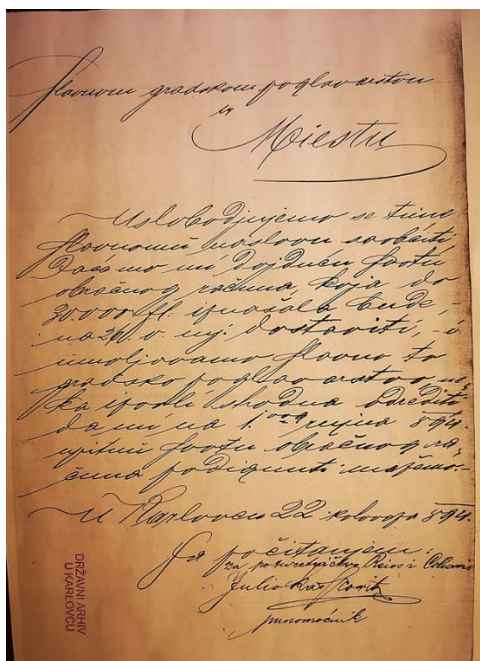 Slavnom gradskom poglavarstvu
u
Miestu
Uslobodjujemo se time
slavnomu naslovu saobćiti,
da ćemo mi, dojdući
obračnog računa, koja do
30.000 fl. iznašala bude, -
na 26. o. mj. dostaviti, - i
umoljavamo slavno to
gradsko poglavarstvo, ne-
ka izvoli shodna odrediti
da mi na 1.og rujna 894.
obračnog ra-
čuna podignuti možemo. -
U Karlovcu 22 kolovoza 894.
Sa počitanjem:
za poduzetničtvo
Julio
punomoćnik
DRŽAVNI ARHIV
U KARLOVCU